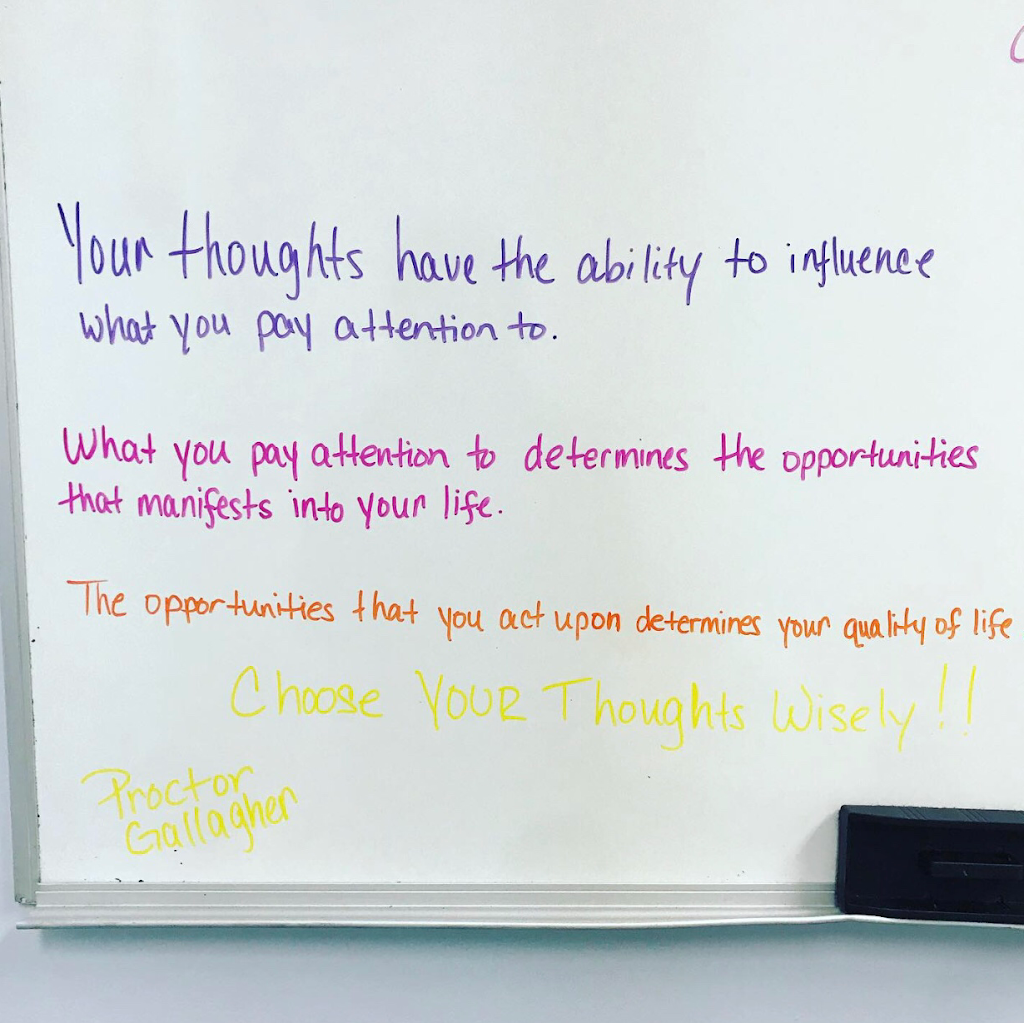 Your thoughts have the ability to influence
what you pay attention to.
What you pay attention to determines the opportunities
that manifests into your life.
The opportunities that you act upon determines your quality of life
Choose YOUR Thoughts Wisely!!
Proctor
Gallagher